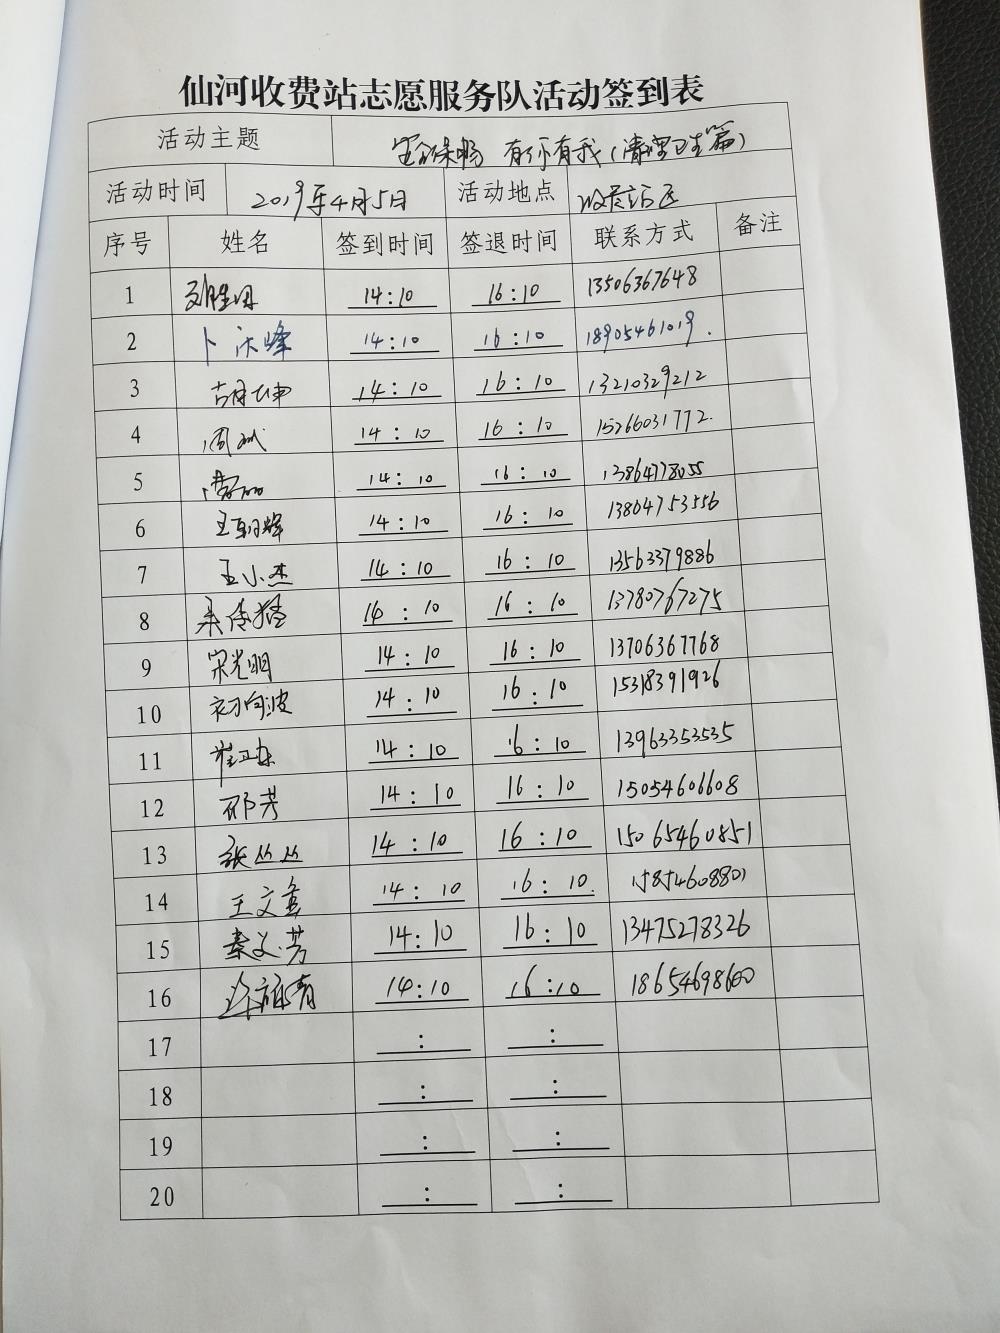 仙河收费站志愿服务队活动签到表
活动主题 保畅 有你有我(清理卫生篇)
活动时间 2019年4月5日 活动地点 收费站区
序号 姓名 签到时间 签退时间 联系方式 备注
1 14:10 16:10 13506367648
2 卜庆峰 14:10 16:10 18905461019.
3 胡坤 14:10 16:10 13210329212
4 周斌 14:10 16:10 15266031772.
5 14:10 16:10 13864778055
6 王朝辉 14:10 16:10 13864753556
7 王小杰 14:10 16:10 13563379886
8 14:10 16:10 13780767275
9 宋光明 14:10 16:10 13706367768
10 初向波 14:10 16:10 15318391926
11 14:10 16:10 13963353535
12 邴芳 14:10 16:10 15054606608
13 张丛丛 14:10 16:10 15065460851
14 王文 14:10 16:10.
15 秦义芳 14:10 16:10 13475278326
16 14:10 16:10 18654698600
17 : :
18 : :
19 : :
20 : :